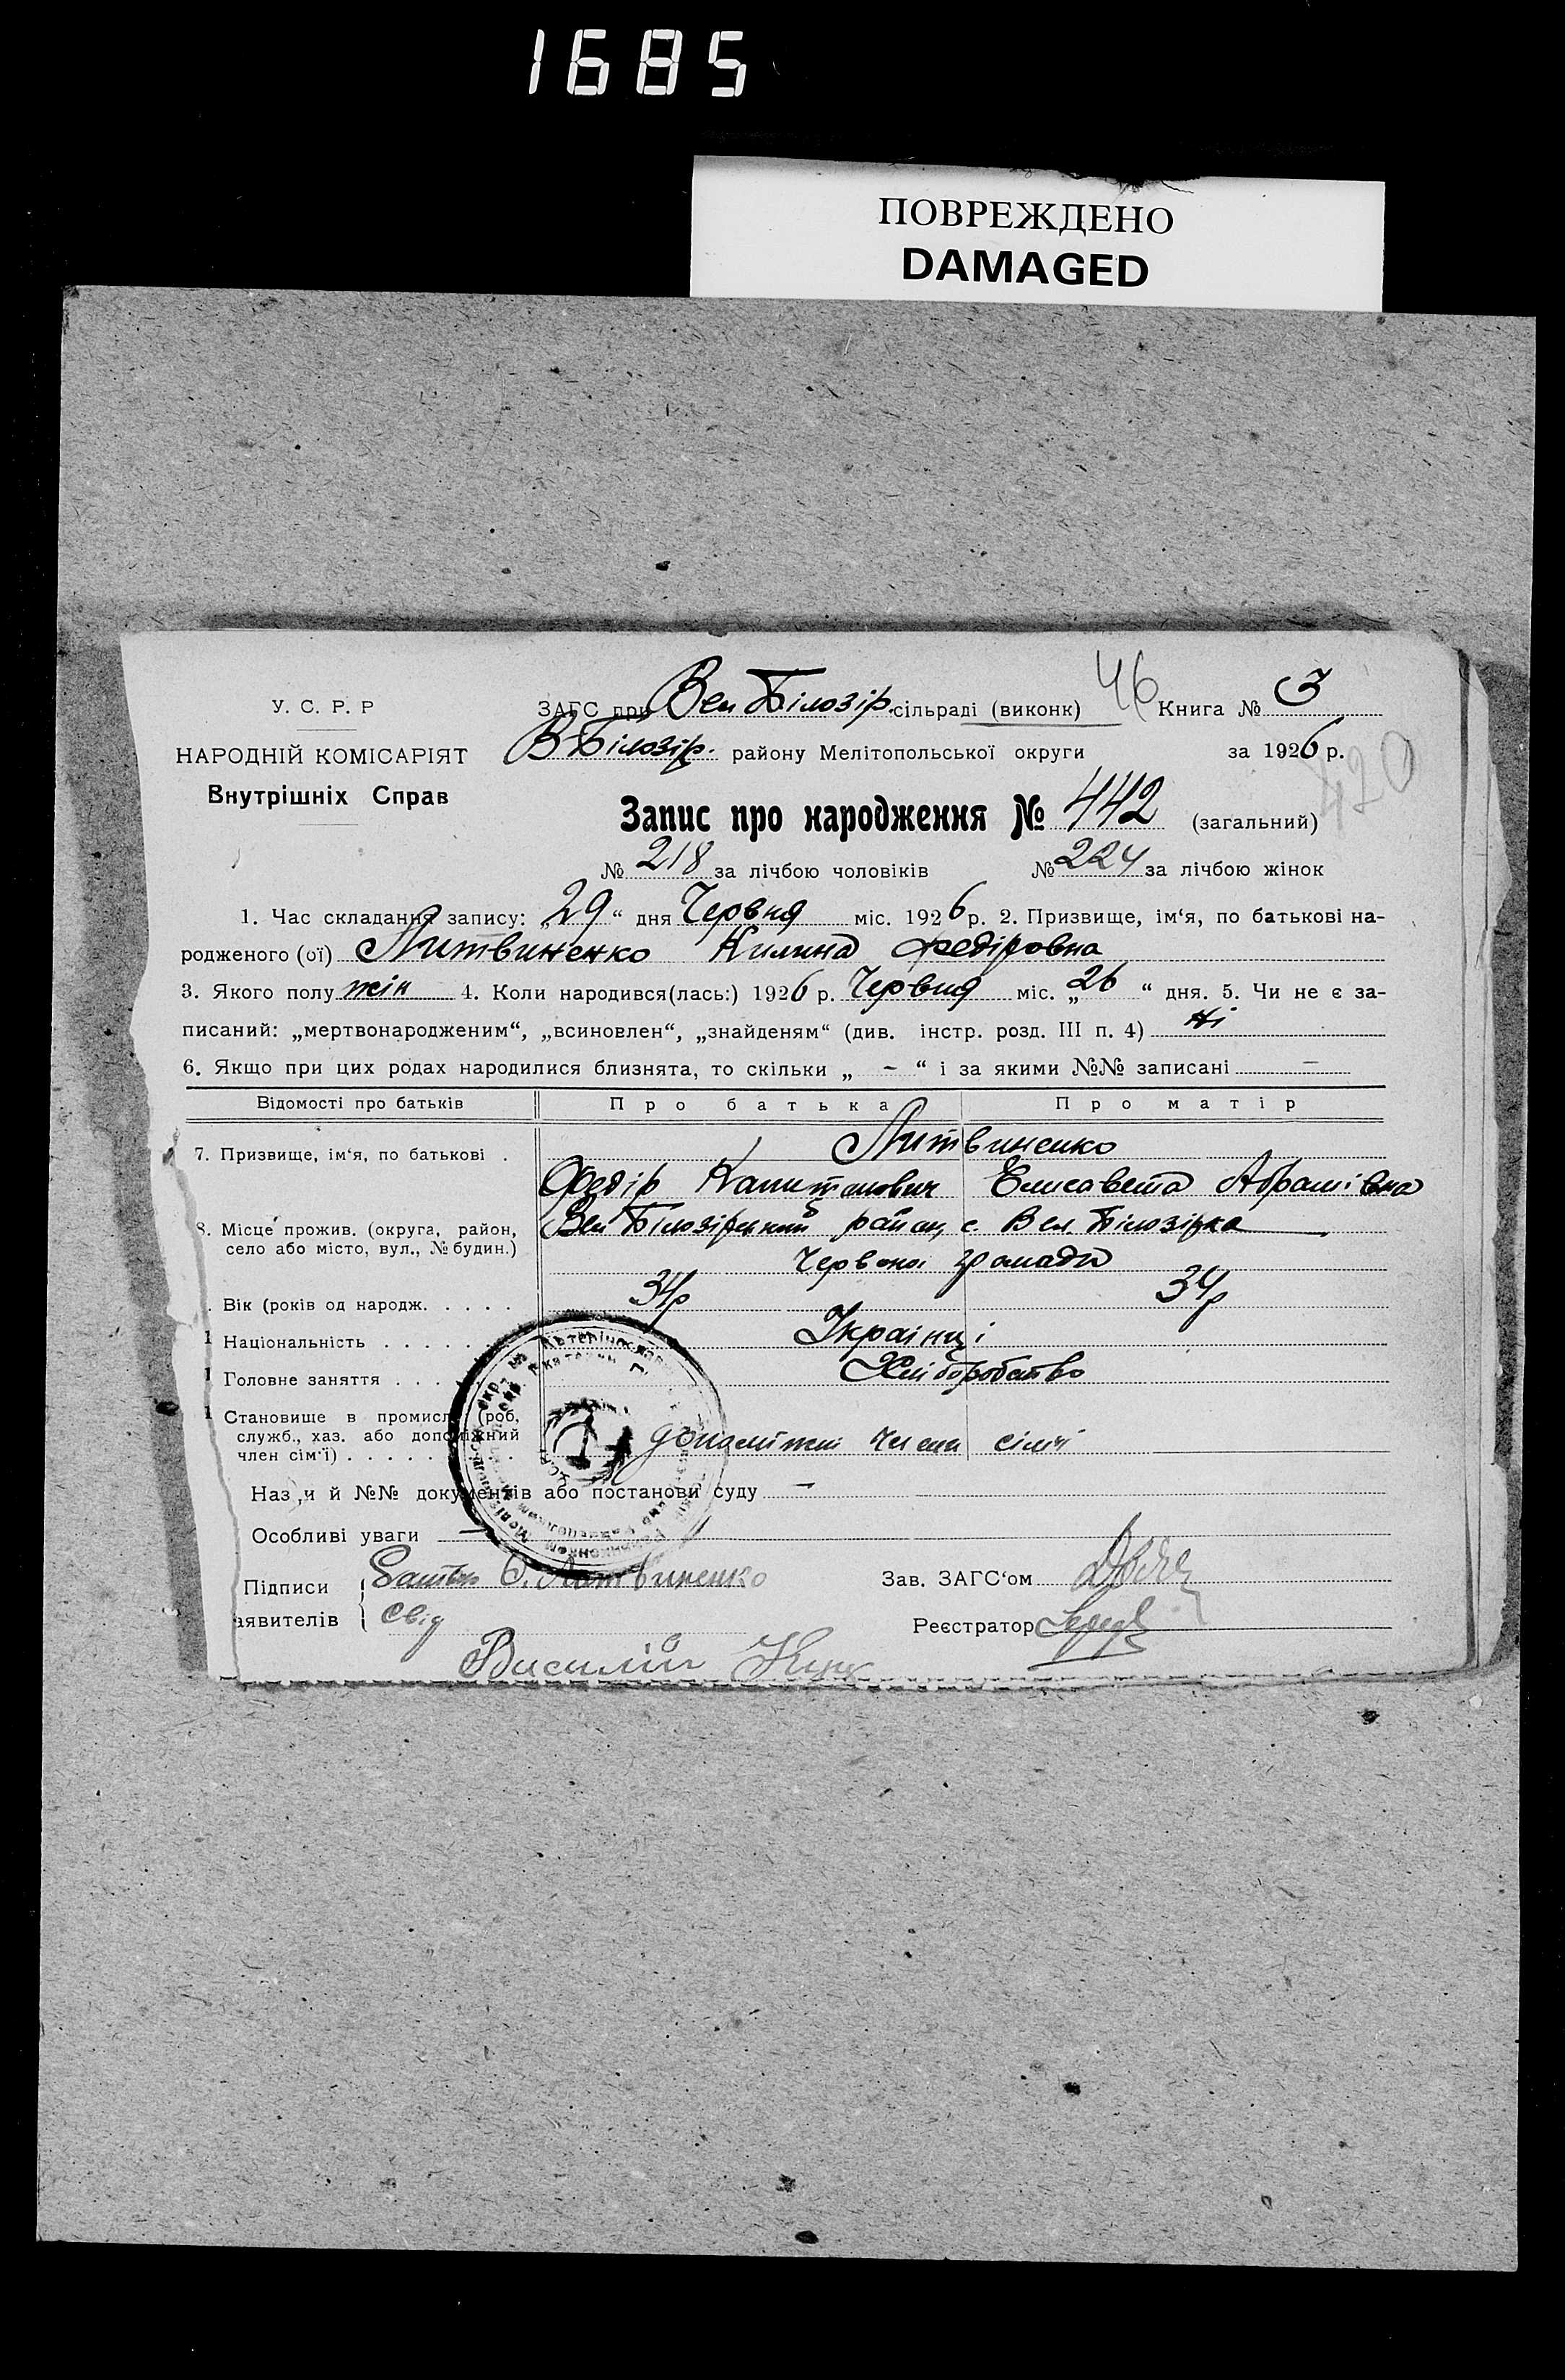 1685
ПОВРЕЖДЕНО
DAMAGED
У. С. Р. Р
НАРОДНІЙ КОМІСАРІЯТ
Внутрішніх Справ
ЗАГС при Вел Білозір. сільраді (виконк) 46 Книга № 3
В-Білозір. району Мелітопольської округи за 1926 р.
420
Запис про народження № 442 (загальний)
№ 218 за лічбою чоловіків № 224 за лічбою жінок
1. Час складання запису: „29“ дня Червня міс. 1926 р. 2. Призвище, ім‘я, по батькові на-
родженого (ої) Литвиненко Килина Федіровна
3. Якого полу жін 4. Коли народився(лась:) 1926 р. Червня міс. „26“ дня. 5. Чи не є за-
писаний: „мертвонародженим“, „всиновлен“, „знайденям“ (див. інстр. розд. III п. 4) Ні
6. Якщо при цих родах народилися близнята, то скільки „ - “ і за якими №№ записані –
Відомості про батьків Про батька Про матір
7. Призвище, ім‘я, по батькові . Литвиненко
Федір Капитонович Елисавета Абрамівна
8. Місце прожив. (округа, район, село або місто, вул., № будин.) Вел Білозірський район, с. Вел. Білозірка
Червоної громади
Вік (років од народж. . . . . 34р 34р
1 Національність . . . . . . Українці
1 Головне заняття . . . . . Хліборобство
1 Становище в промислі (роб,
служб., хаз. або допоміжний
член сім‘ї) . . . . . . допоміжні члени сім'ї
Наз и й №№ документів або постанови суду –
Особливі уваги –
Підписи Батько Ф. Литвиненко Зав. ЗАГС‘ом
аявителів Свід Реєстратор
Василій